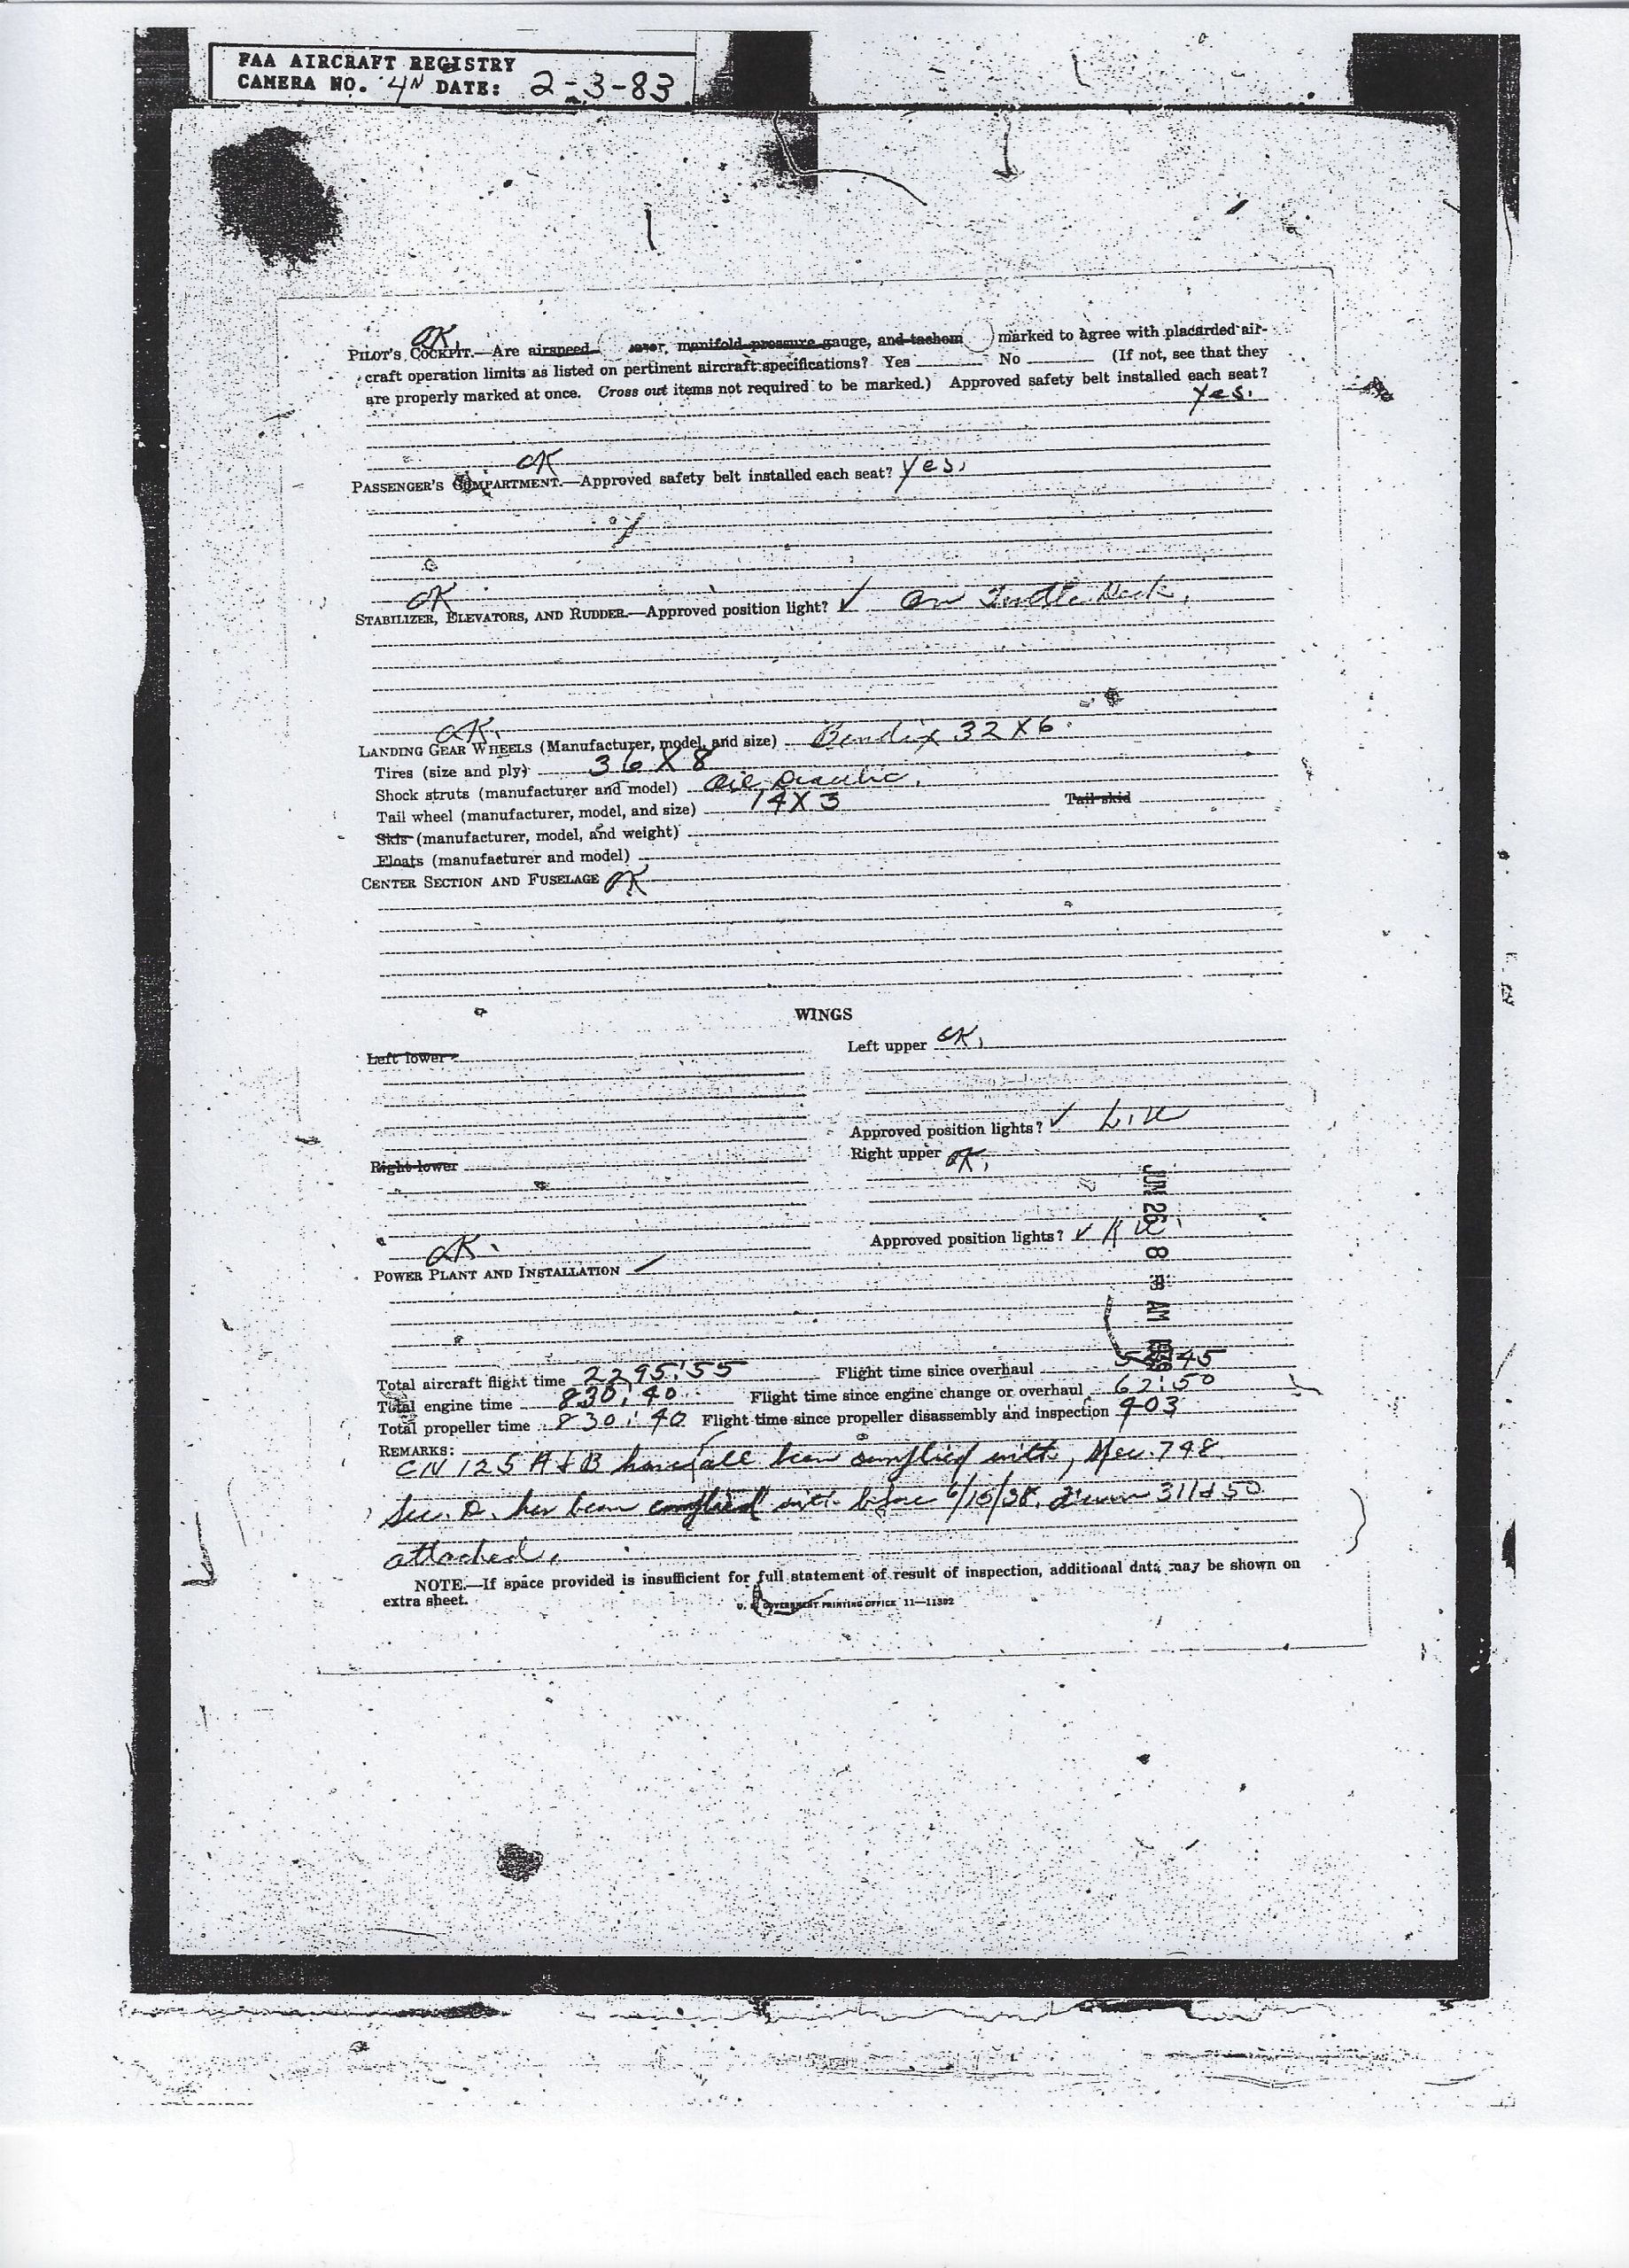 FAA AIRCRAFT REGISTRY
CAMERA NO. 4N DATE: 2-3-83
OK.
PILOT'S COCKPIT.—Are airspeed manifold pressure gauge, and tachom marked to agree with placarded air-
craft operation limits as listed on pertinent aircraft specifications? Yes No (If not, see that they
are properly marked at once. Cross out items not required to be marked.) Approved safety belt installed each seat?
Yes.
OK
PASSENGER'S COMPARTMENT.—Approved safety belt installed each seat? Yes.
OK
STABILIZER, ELEVATORS, AND RUDDER.—Approved position light? ✓ On Deck.
OK.
LANDING GEAR WHEELS (Manufacturer, model, and size) Bendix 32X6.
Tires (size and ply) 36X8
Shock struts (manufacturer and model) Oil
Tail wheel (manufacturer, model, and size) 14X3 Tail skid
Skis (manufacturer, model, and weight)
Floats (manufacturer and model)
CENTER SECTION AND FUSELAGE OK
WINGS
Left lower
Left upper OK.
Approved position lights? ✓
Right lower
Right upper OK.
Approved position lights? ✓
JUN 26 8 AM
OK.
POWER PLANT AND INSTALLATION
Total aircraft flight time 2295:55 Flight time since overhaul 45
Total engine time 830:40 Flight time since engine change or overhaul 62:50
Total propeller time 830:40 Flight time since propeller disassembly and inspection 403
REMARKS:
CN 125 A & B have all been complied with, Mec. 748
Sec. D. has been complied with before 6/15/38. 311 & 50
attached.
NOTE.—If space provided is insufficient for full statement of result of inspection, additional data may be shown on
extra sheet.
U. S. GOVERNMENT PRINTING OFFICE 11—11302